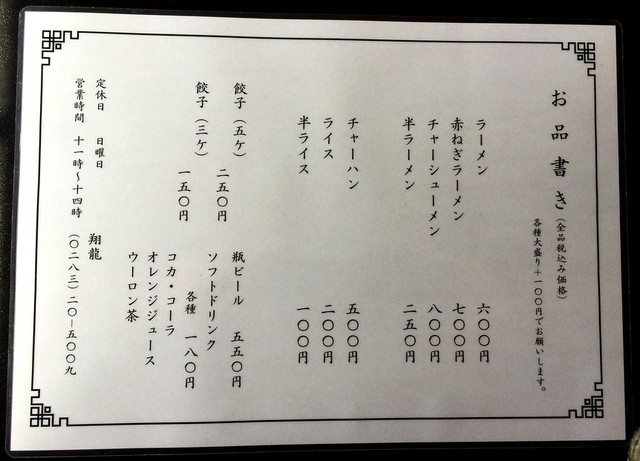 お品書き（全品税込み価格）
各種大盛り＋一〇〇円でお願いします。
ラーメン 六〇〇円
赤ねぎラーメン 七〇〇円
チャーシューメン 八〇〇円
半ラーメン 二五〇円
チャーハン 五〇〇円
ライス 二〇〇円
半ライス 一〇〇円
餃子（五ケ） 二五〇円
餃子（三ケ） 一五〇円
瓶ビール 五五〇円
ソフトドリンク
各種 一八〇円
コカ・コーラ
オレンジジュース
ウーロン茶
定休日 日曜日
営業時間 十一時～十四時
翔龍
（〇二八三）二〇－五〇〇九